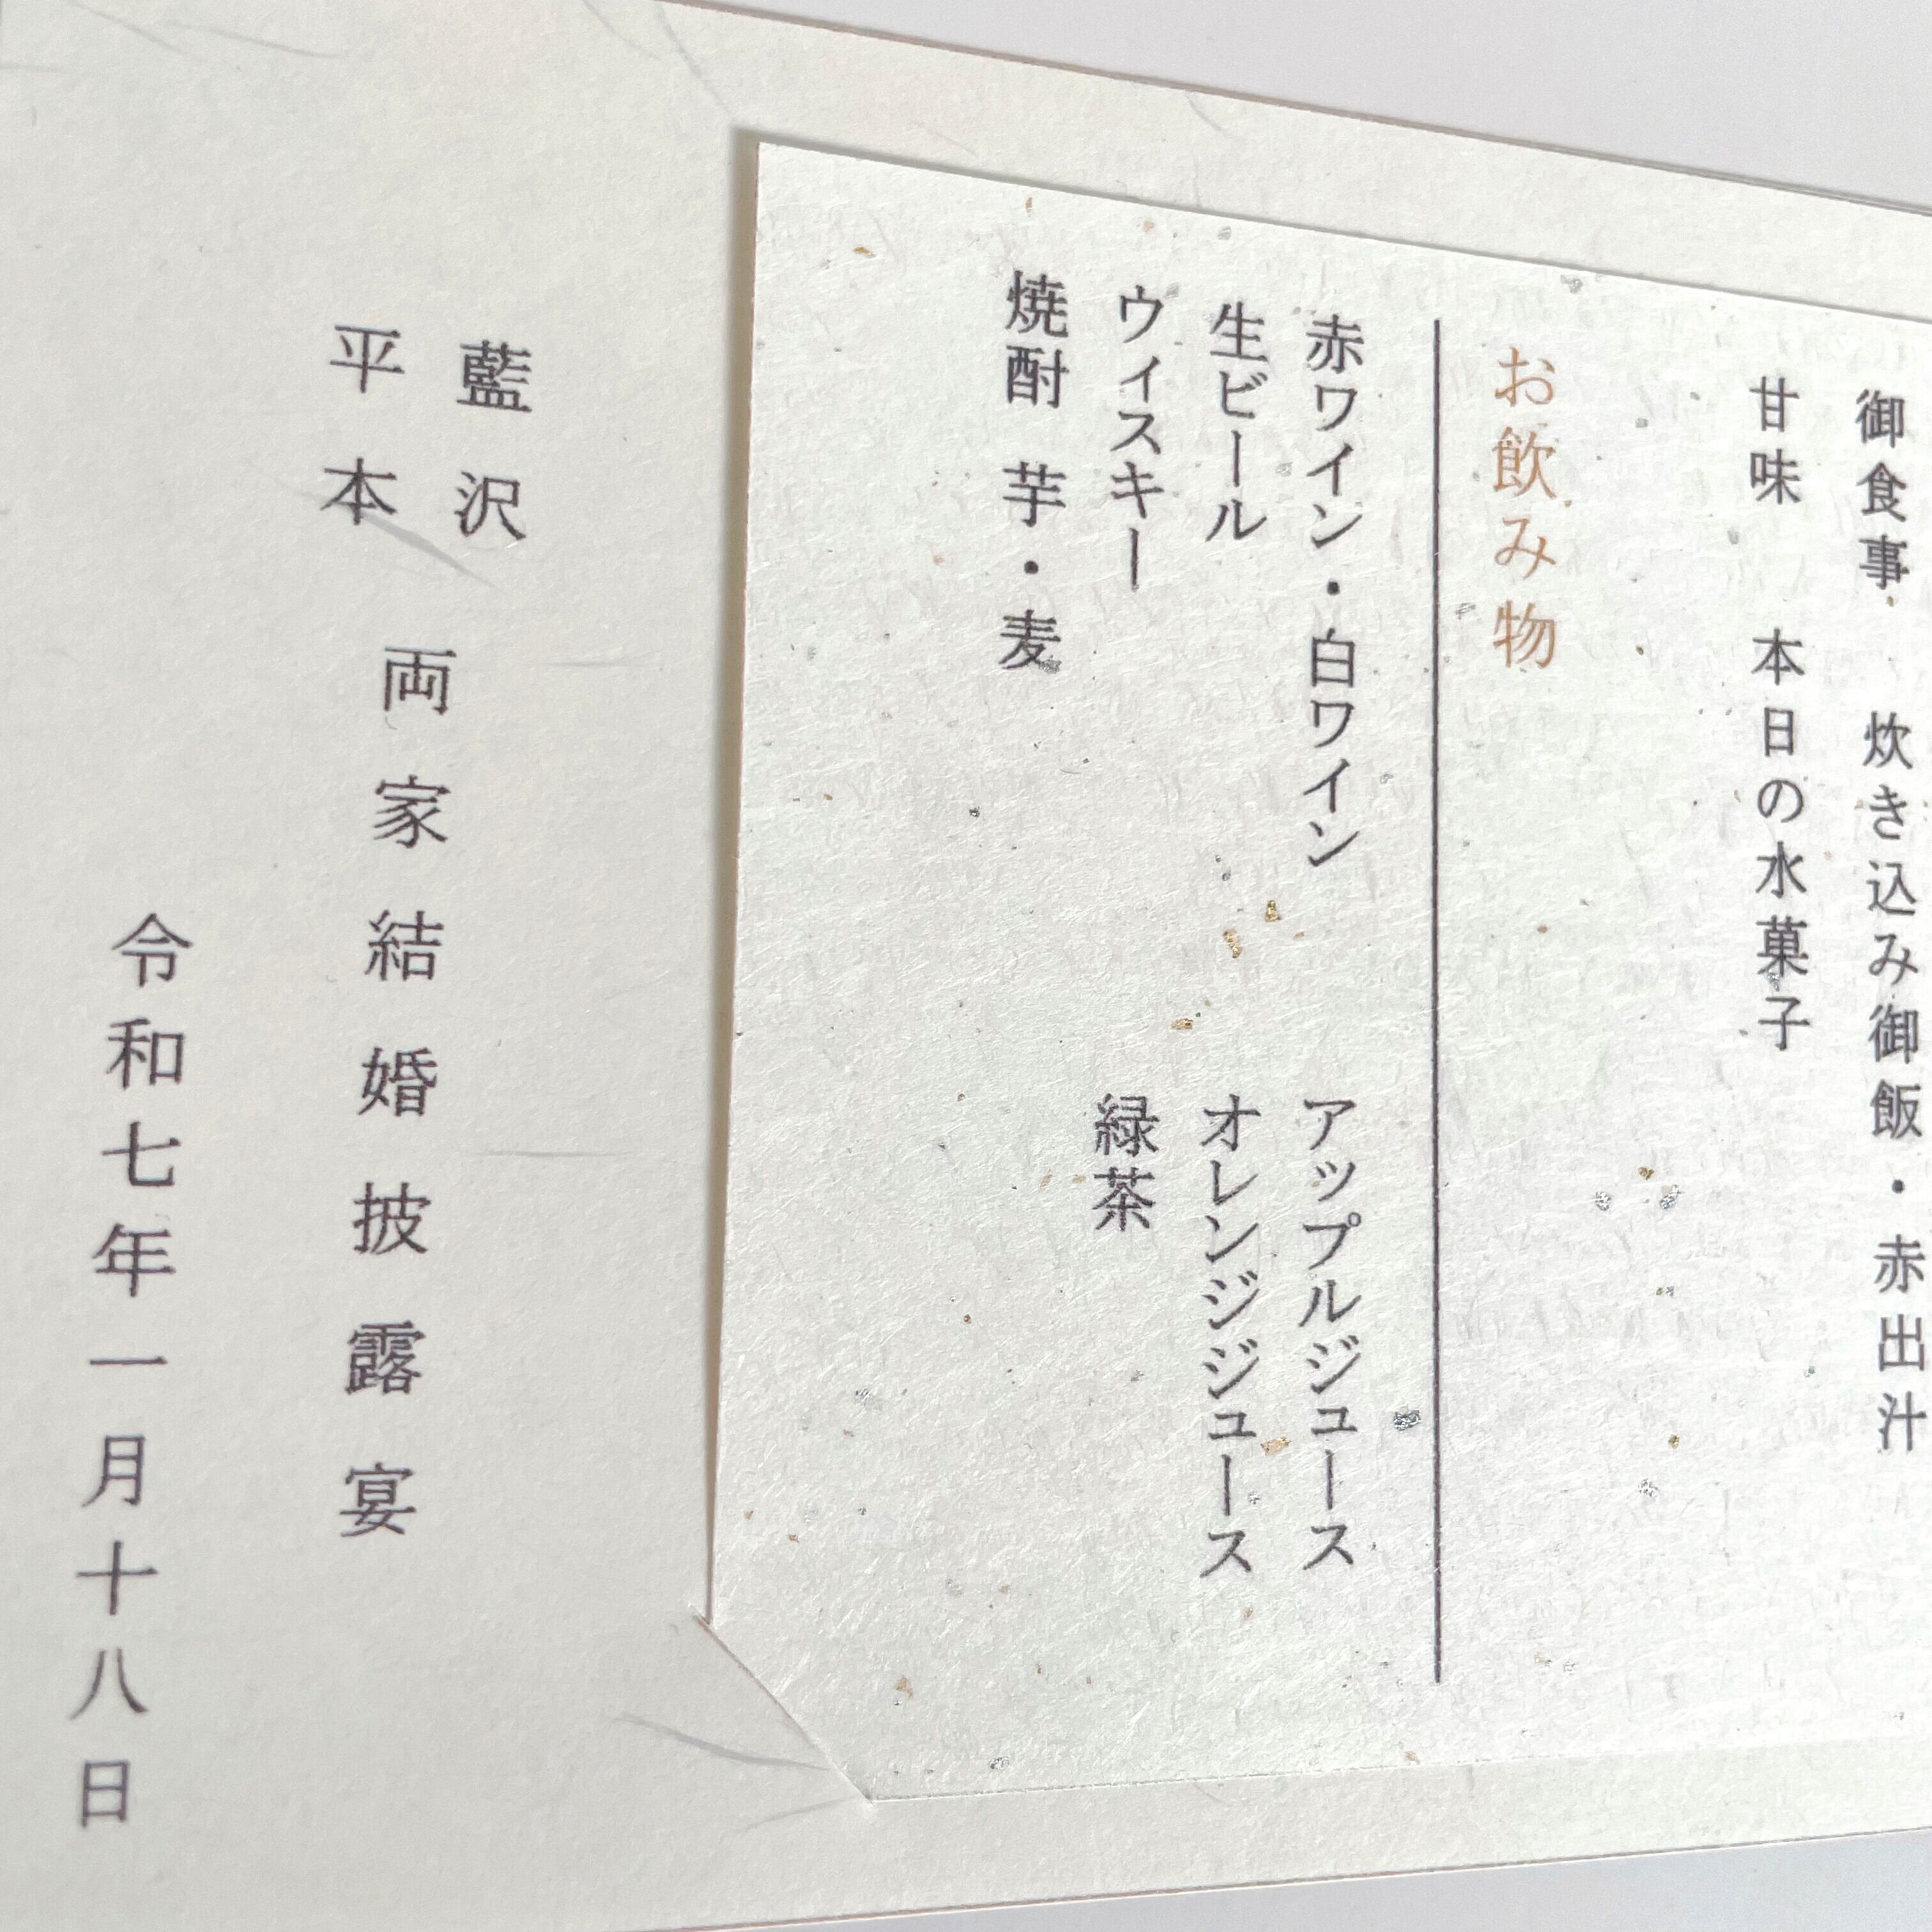 御食事 炊き込み御飯・赤出汁
甘味 本日の水菓子
お飲み物
赤ワイン・白ワイン
生ビール
ウィスキー
焼酎 芋・麦
アップルジュース
オレンジジュース
緑茶
藍沢
平本
両家結婚披露宴
令和七年一月十八日